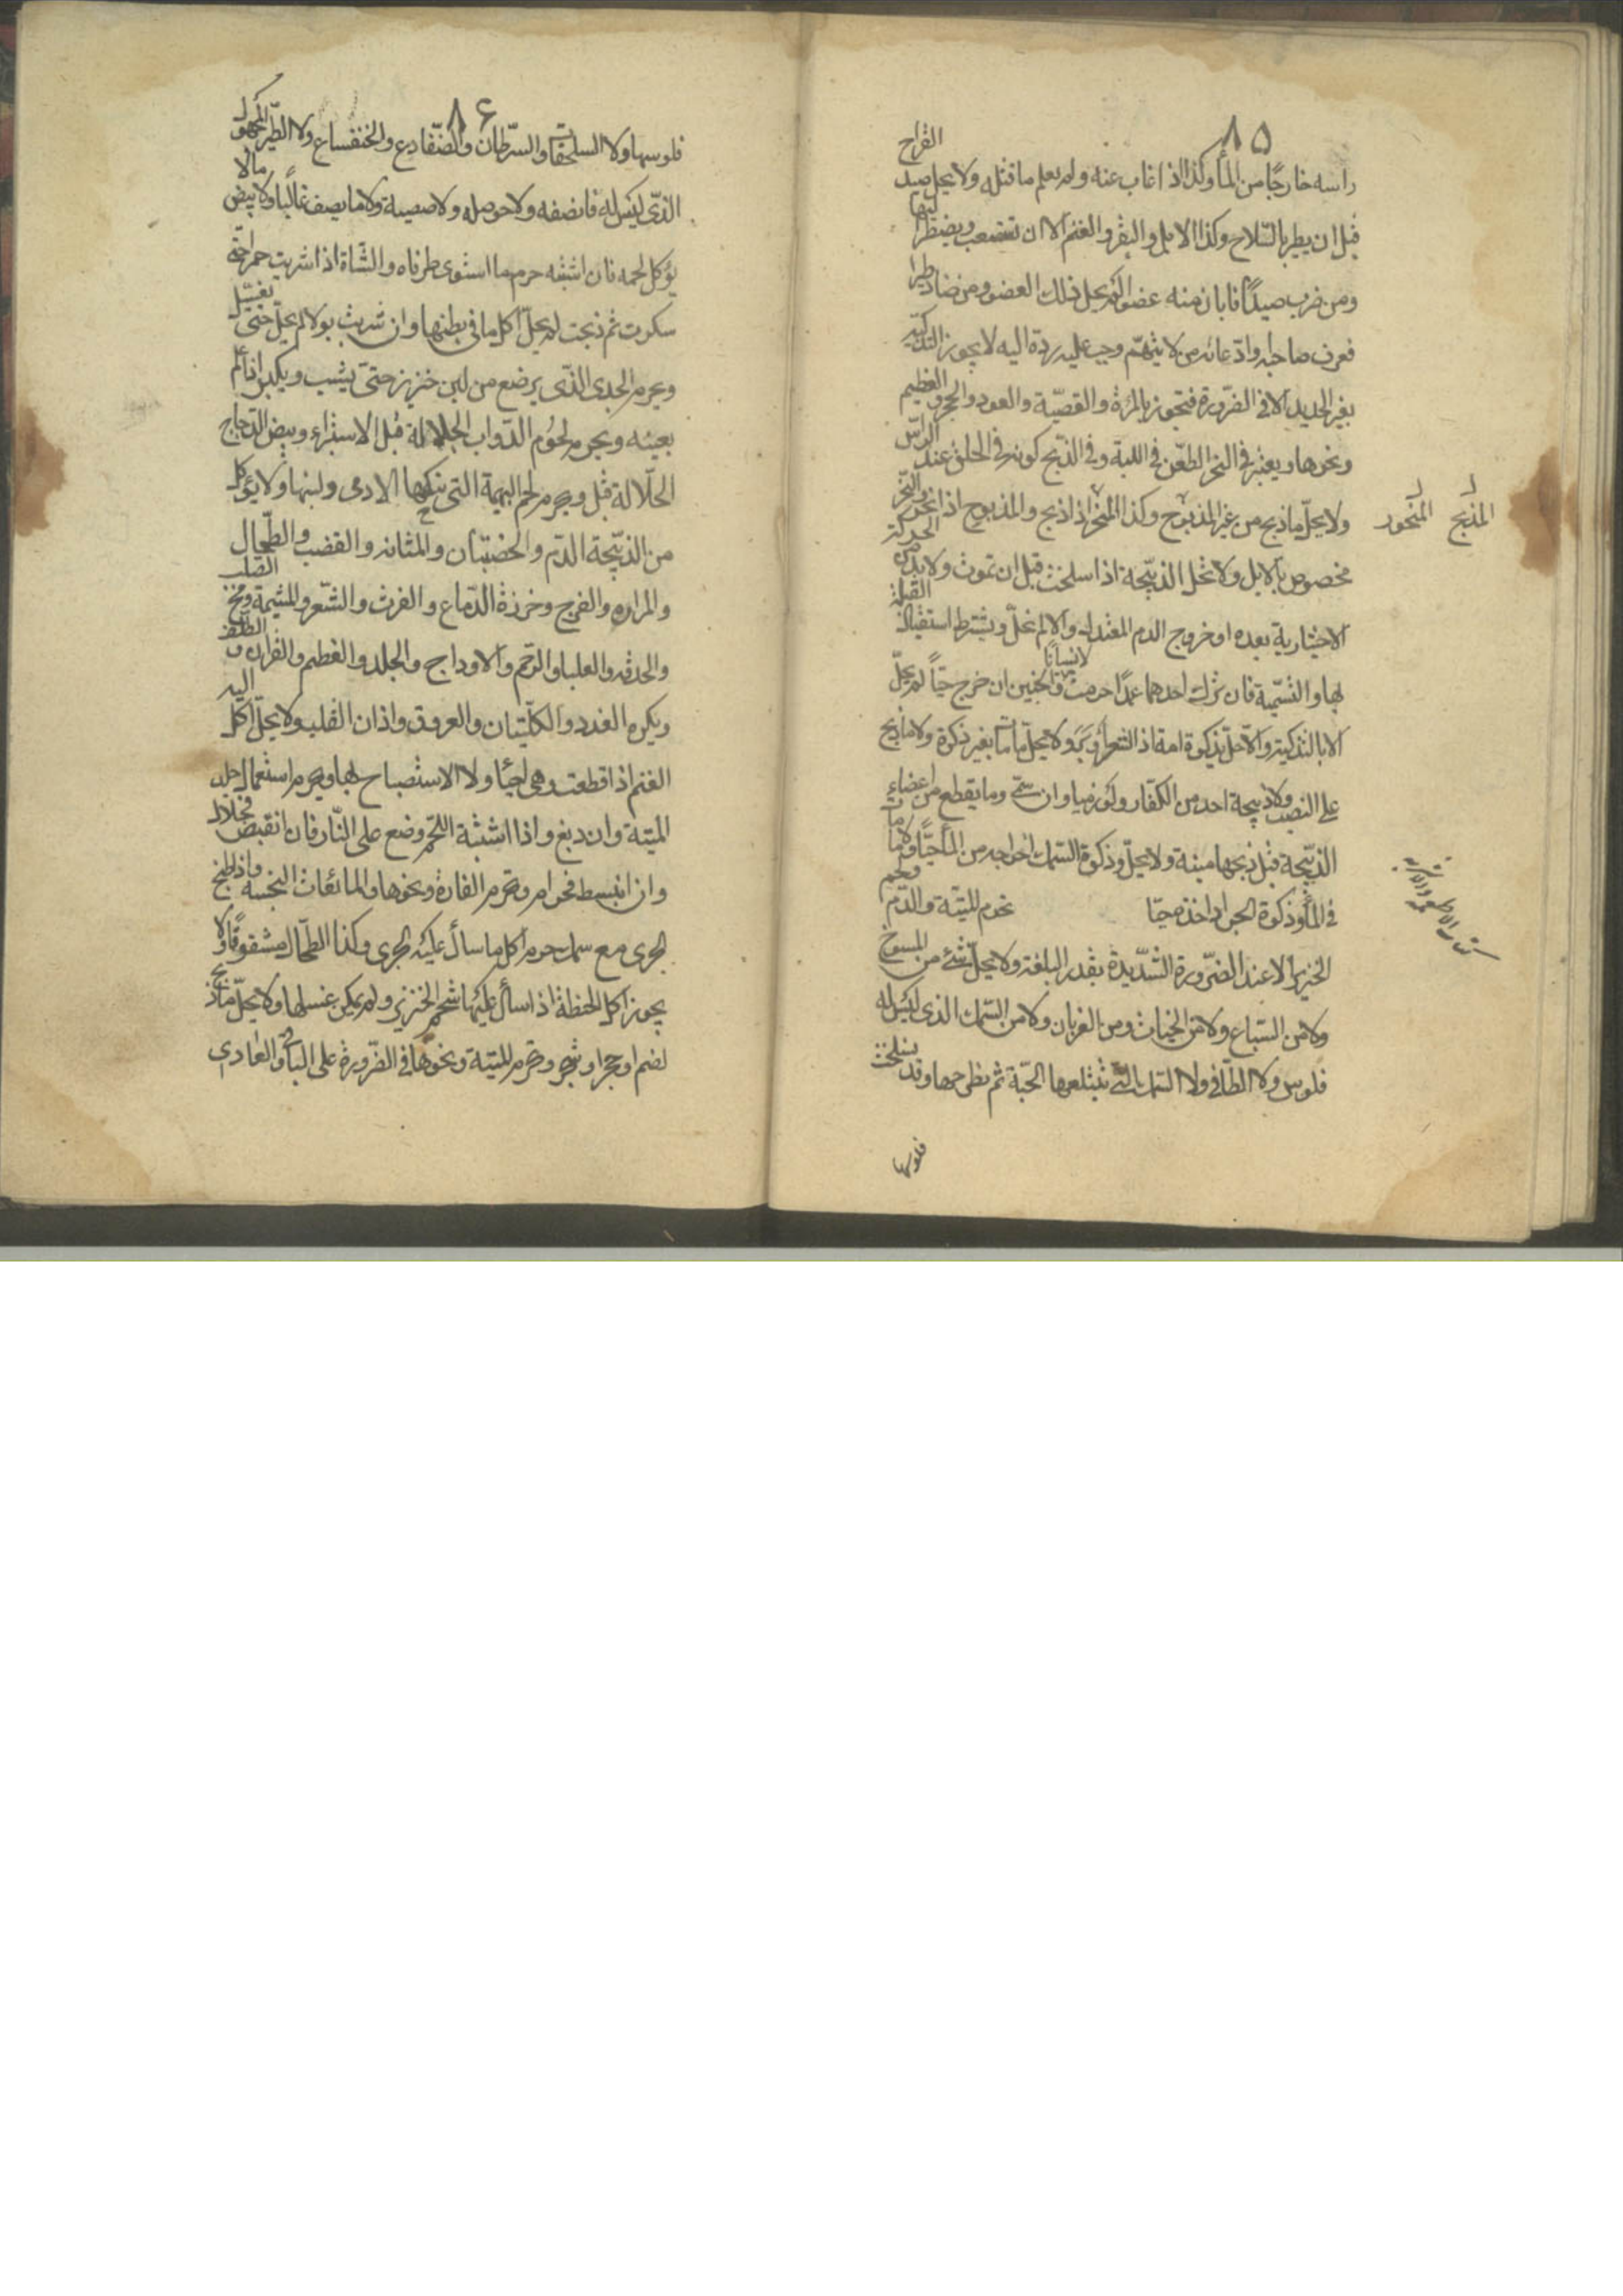 ٨٥
راسه خارجًا من الماء وكذا اذا غاب عنه ولم يعلم ما قتله ولا يحل صيد الفراخ
قبل ان يطير بالسّلاح وكذا الابل والبقر والغنم الا ان تستصعب ويضطر اليها
ومن ضرب صيدًا فابان منه عضوا لم يحل ذلك العضو ومن صاد طيرا
فعرف صاحبه وادّعائه من لا يتهم وجب عليه ردّه اليه لا يجوز التذكية
بغير الحديد الا فى الضّرورة فتجوز بالمروة والقصبة والعود والحجر والعظيم
ونحوها ويعتبر فى النحر الطعن فى اللبة وفى الذّبح كونه فى الحلق عند الراس
ولا يحلّ ما ذبح من غير المذبوح وكذا المنحر اذا ذبح والمذبوح اذا نحر والنحر
المذبح المنحور
مخصوص بالابل ولا تحل الذبيحة اذا سلخت قبل ان تموت ولا بد من الحركة
الاختيارية بعده او خروج الدم المعتدل والا لم تحلّ ويشترط استقبال القبلة
بها والتسمية فان ترك احدهما عمدًا حرمت لا نسيانًا والجنين ان خرج حيّا لم يحلّ
الا بالتذكية والا حلّ بذكوة امه اذا اشعر او اوبر ولا يحلّ ما مات بغير ذكوة ولا ما ذبح
على النصب ولا ذبيحة احد من الكفّار ولو ذميا وان سمّى وما يقطع من اعضاء
الذبيحة قبل ذبحها ميتة ولا يحلّ وذكوة السّمك اخراجه من الماء حيًّا ولا ما مات
فى الماء وذكوة الجراد اخذه حيّا تحرم الميتة والدّم ولحم
الخنزير الا عند الضّرورة الشّديدة بقدر البلغة ولا يحلّ شئ من المسوخ
ولا من السّباع ولا من الحيات ومن الغربان ولا من السّمك الذى ليس له
فلوس ولا الطّافى ولا السّمك التى تبتلعها الحيّة ثم تطرحها وقد تسلخت
فلوسها
٨۶
فلوسها ولا السلحفاة والسّرطان والضّفادع والخنفساء ولا الطّير المجهول
الذّى ليس له قانصه ولا حوصله ولا صيصية ولا ما يصف غالبًا ولا بيض ما لا
يؤكل لحمه فان اشتبه حرم ما استوى طرفاه والشّاة اذا شربت خمرا حتى
سكرت ثم ذبحت لم يحلّ اكل ما فى بطنها وان شربت بولا لم يحلّ حتى يغسل
ويحرم الجدى الذّى يرضع من لبن خنزير حتى يشب ويكبر اذا علم
بعينه ويحرم لحوم الدّواب الجلالة قبل الاستبراء وبيض الدّجاج
الجلّالة قبل ويحرم لحم البهيمة التى نكحها الادمى ولبنها ولا يؤكل
من الذبيحة الدّم والخصيتان والمثانه والقضيب والطّحال
والمراره والفرج وخرزة الدّماغ والفرث والشّعر والمشيمة ومخ الصلب
والحدقه والعلبا والرّحم والاوداج والجلد والعظم والقرن و الظلف
ويكره الغدد والكليتان والعروق واذان القلب ولا يحلّ اكل الية
الغنم اذا قطعت وهى احياء ولا الاستصباح بها ويحرم استعمال جلد
الميتة وان دبغ واذا اشتبه اللحم وضع على النّار فان انقبض فحلال
وان انبسط فحرام وتحرم الفارة ونحوها والمائعات النجسه واذا طبخ
الجرى مع سمك حرم اكل ما سال عليه الجرى وكذا الطّحال مشقوقًا ولا
يجوز اكل الحنطة اذا سال عليها شحم الخنزير ولم يمكن غسلها ولا يحلّ ما ذبح
لصنم او حجر او شجر وتحرم الميتة ونحوها فى الضّرورة على الباغى والعادى